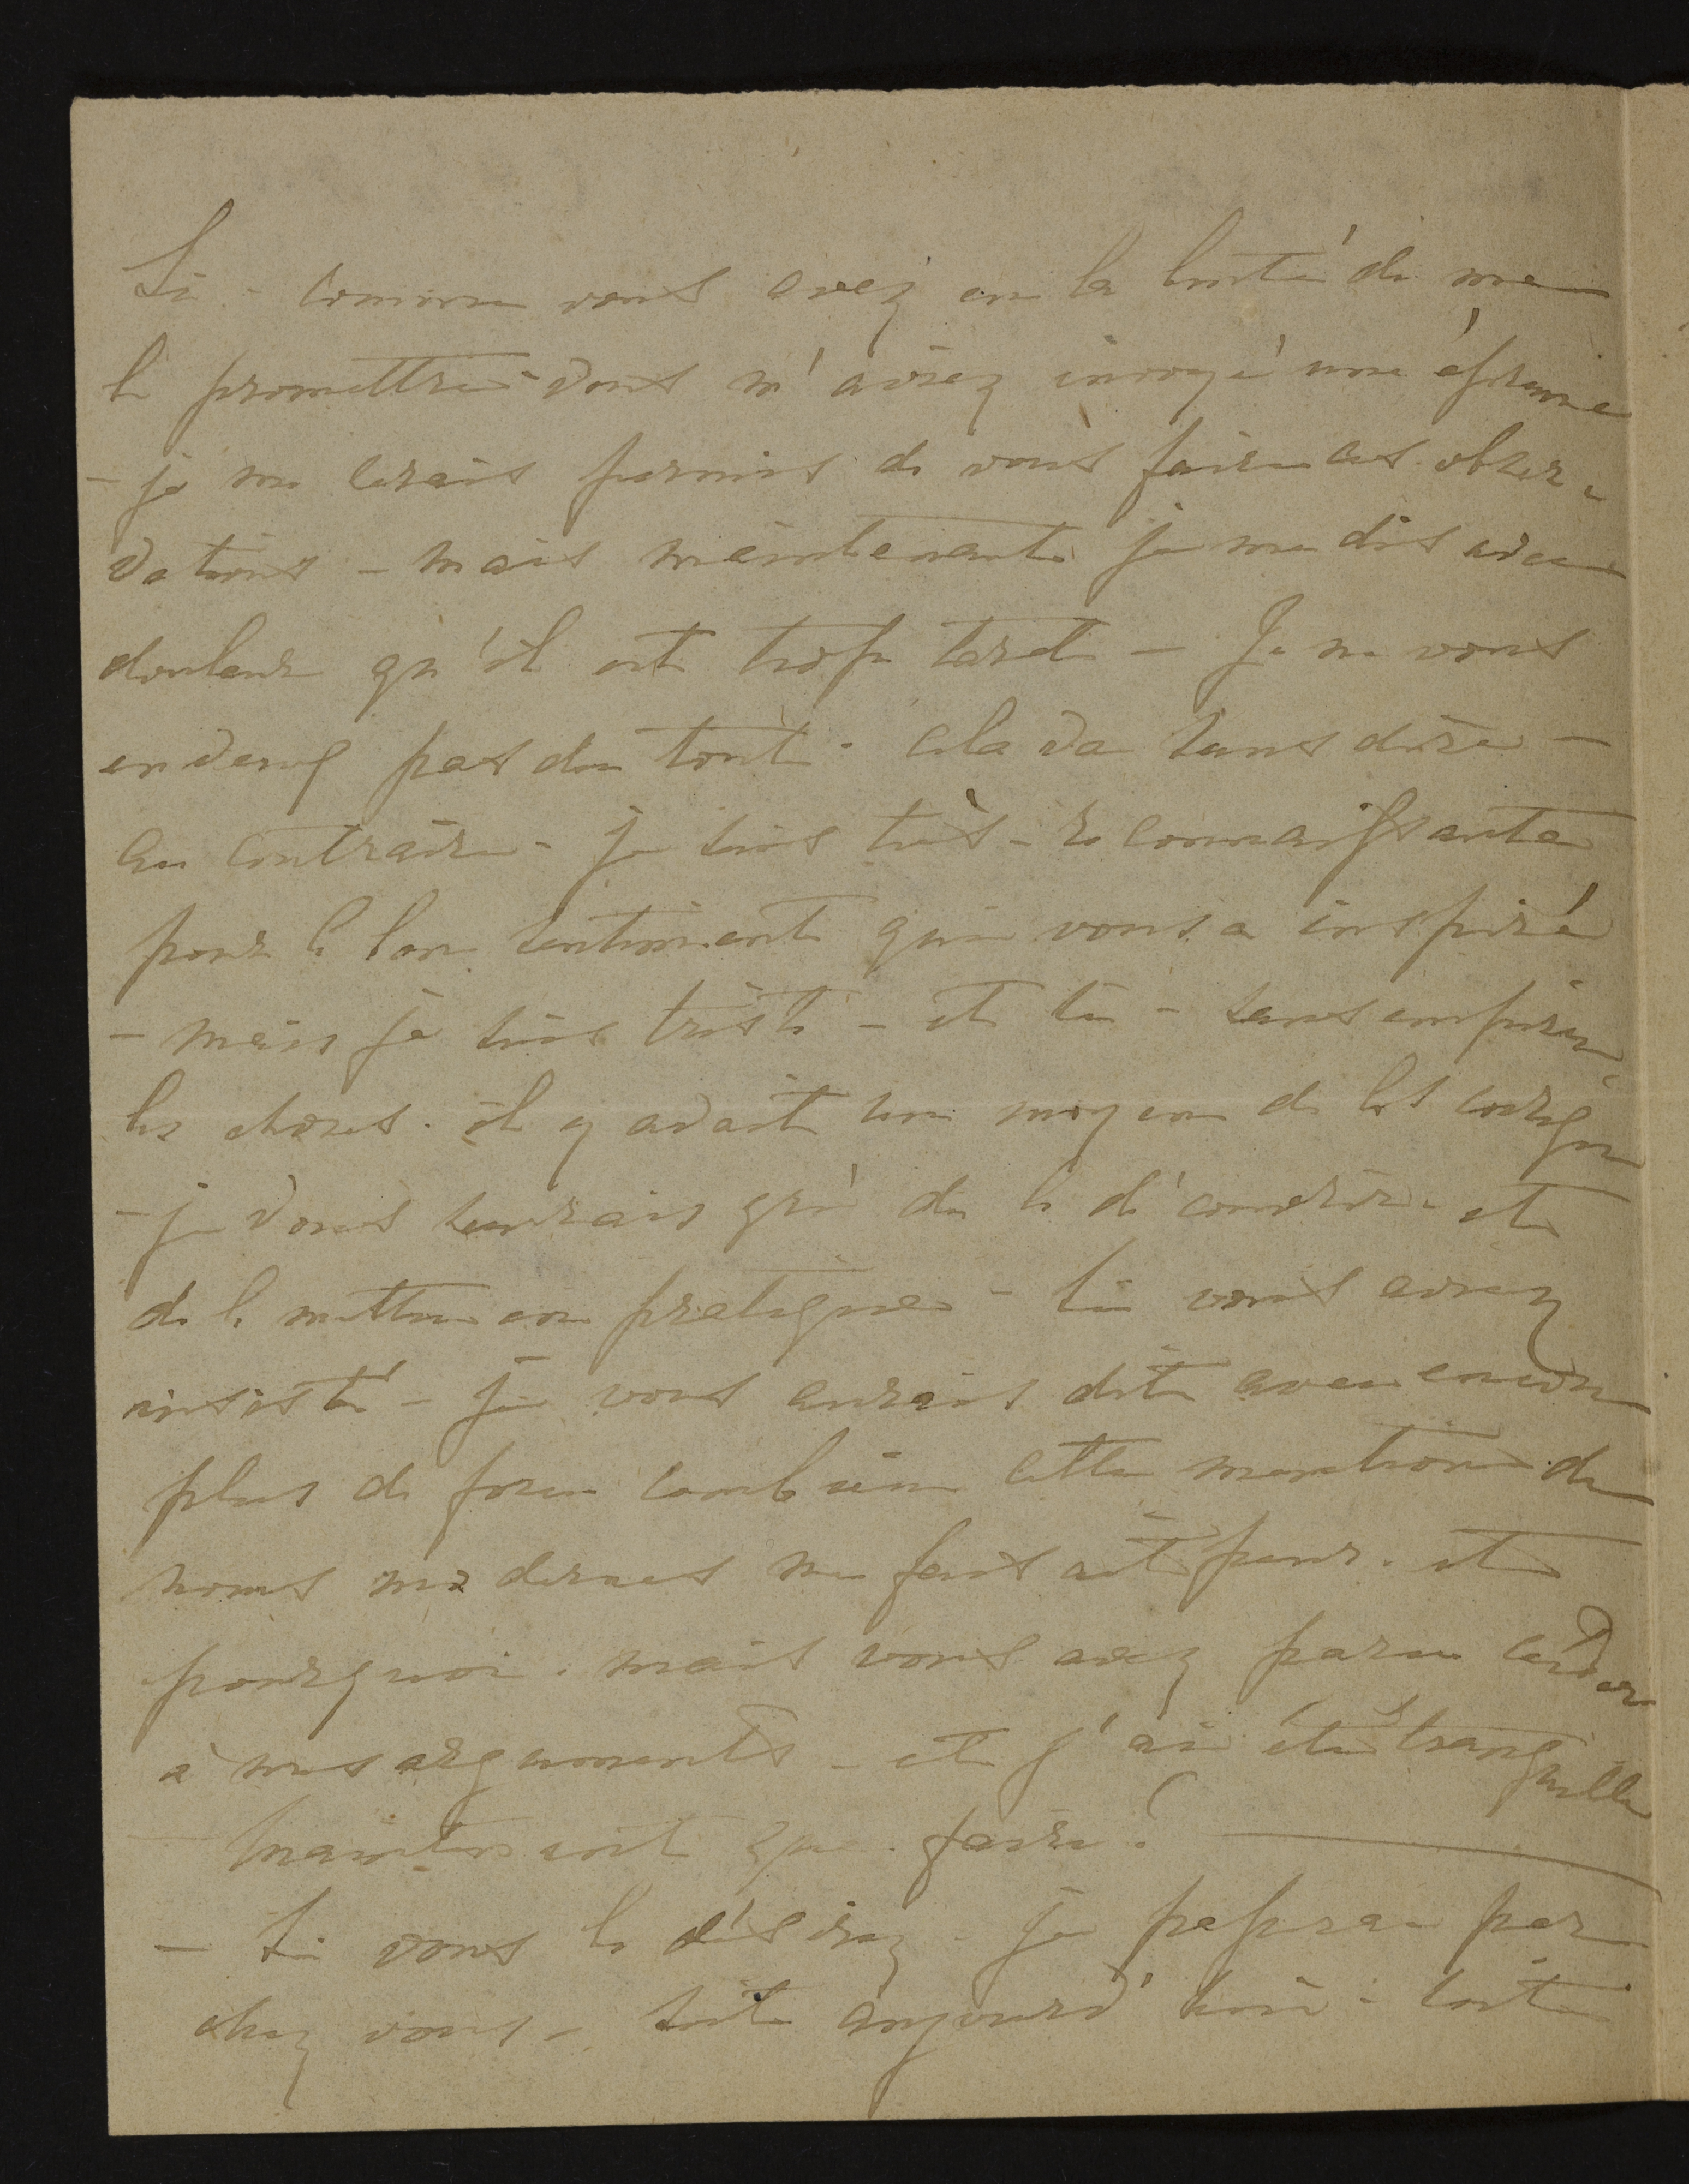 Si - comme vous avez eu la bonté de me
le promettre - vous m'aviez envoyé une épreuve
- je me serais permis de vous faire ces obser-
vations - mais maintenant je me dis avec
douleur qu'il est trop tard - Je ne vous
en veux pas du tout - cela va sans dire -
au contraire - je suis très-reconnaissante
pour le bon sentiment qui vous a inspiré
- mais je suis triste - et si - sans empirer
les choses - il y avait un moyen de les corriger
- je vous saurais gré de le découvrir et
de le mettre en pratique - Si vous aviez
insisté - je vous aurais dit avec encore
plus de force combien cette mention de
noms modernes me faisait peur - et
pourquoi - mais vous avez paru céder
à mes arguments - et j'ai été tranquille
Maintenant que faire?
- Si vous le désirez - je passerai par
chez vous - soit aujourd'hui - soit